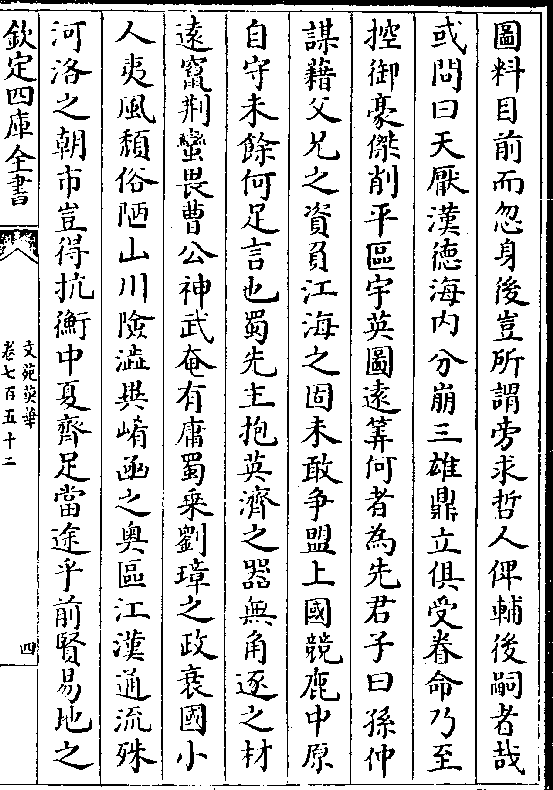 圖料目前而忽身後豈所謂旁求哲人俾輔後嗣者哉
或問曰天厭漢德海内分崩三雄鼎立俱受眷命乃至
控御豪傑削平區宇英圖遠筭何者為先君子曰孫仲
謀藉父兄之資負江海之固未敢争盟上國競鹿中原
自守未餘何足言也蜀先主抱英濟之器無角逐之材
逺竄荆蠻畏曹公神武奄有庸蜀乗劉璋之政衰國小
人夷風頽俗陋山川險澁異崤函之奥區江漢通流殊
河洛之朝市豈得抗衡中夏齊足當途乎前賢易地之
欽定四庫全書
文苑英華
卷七百五十二
四